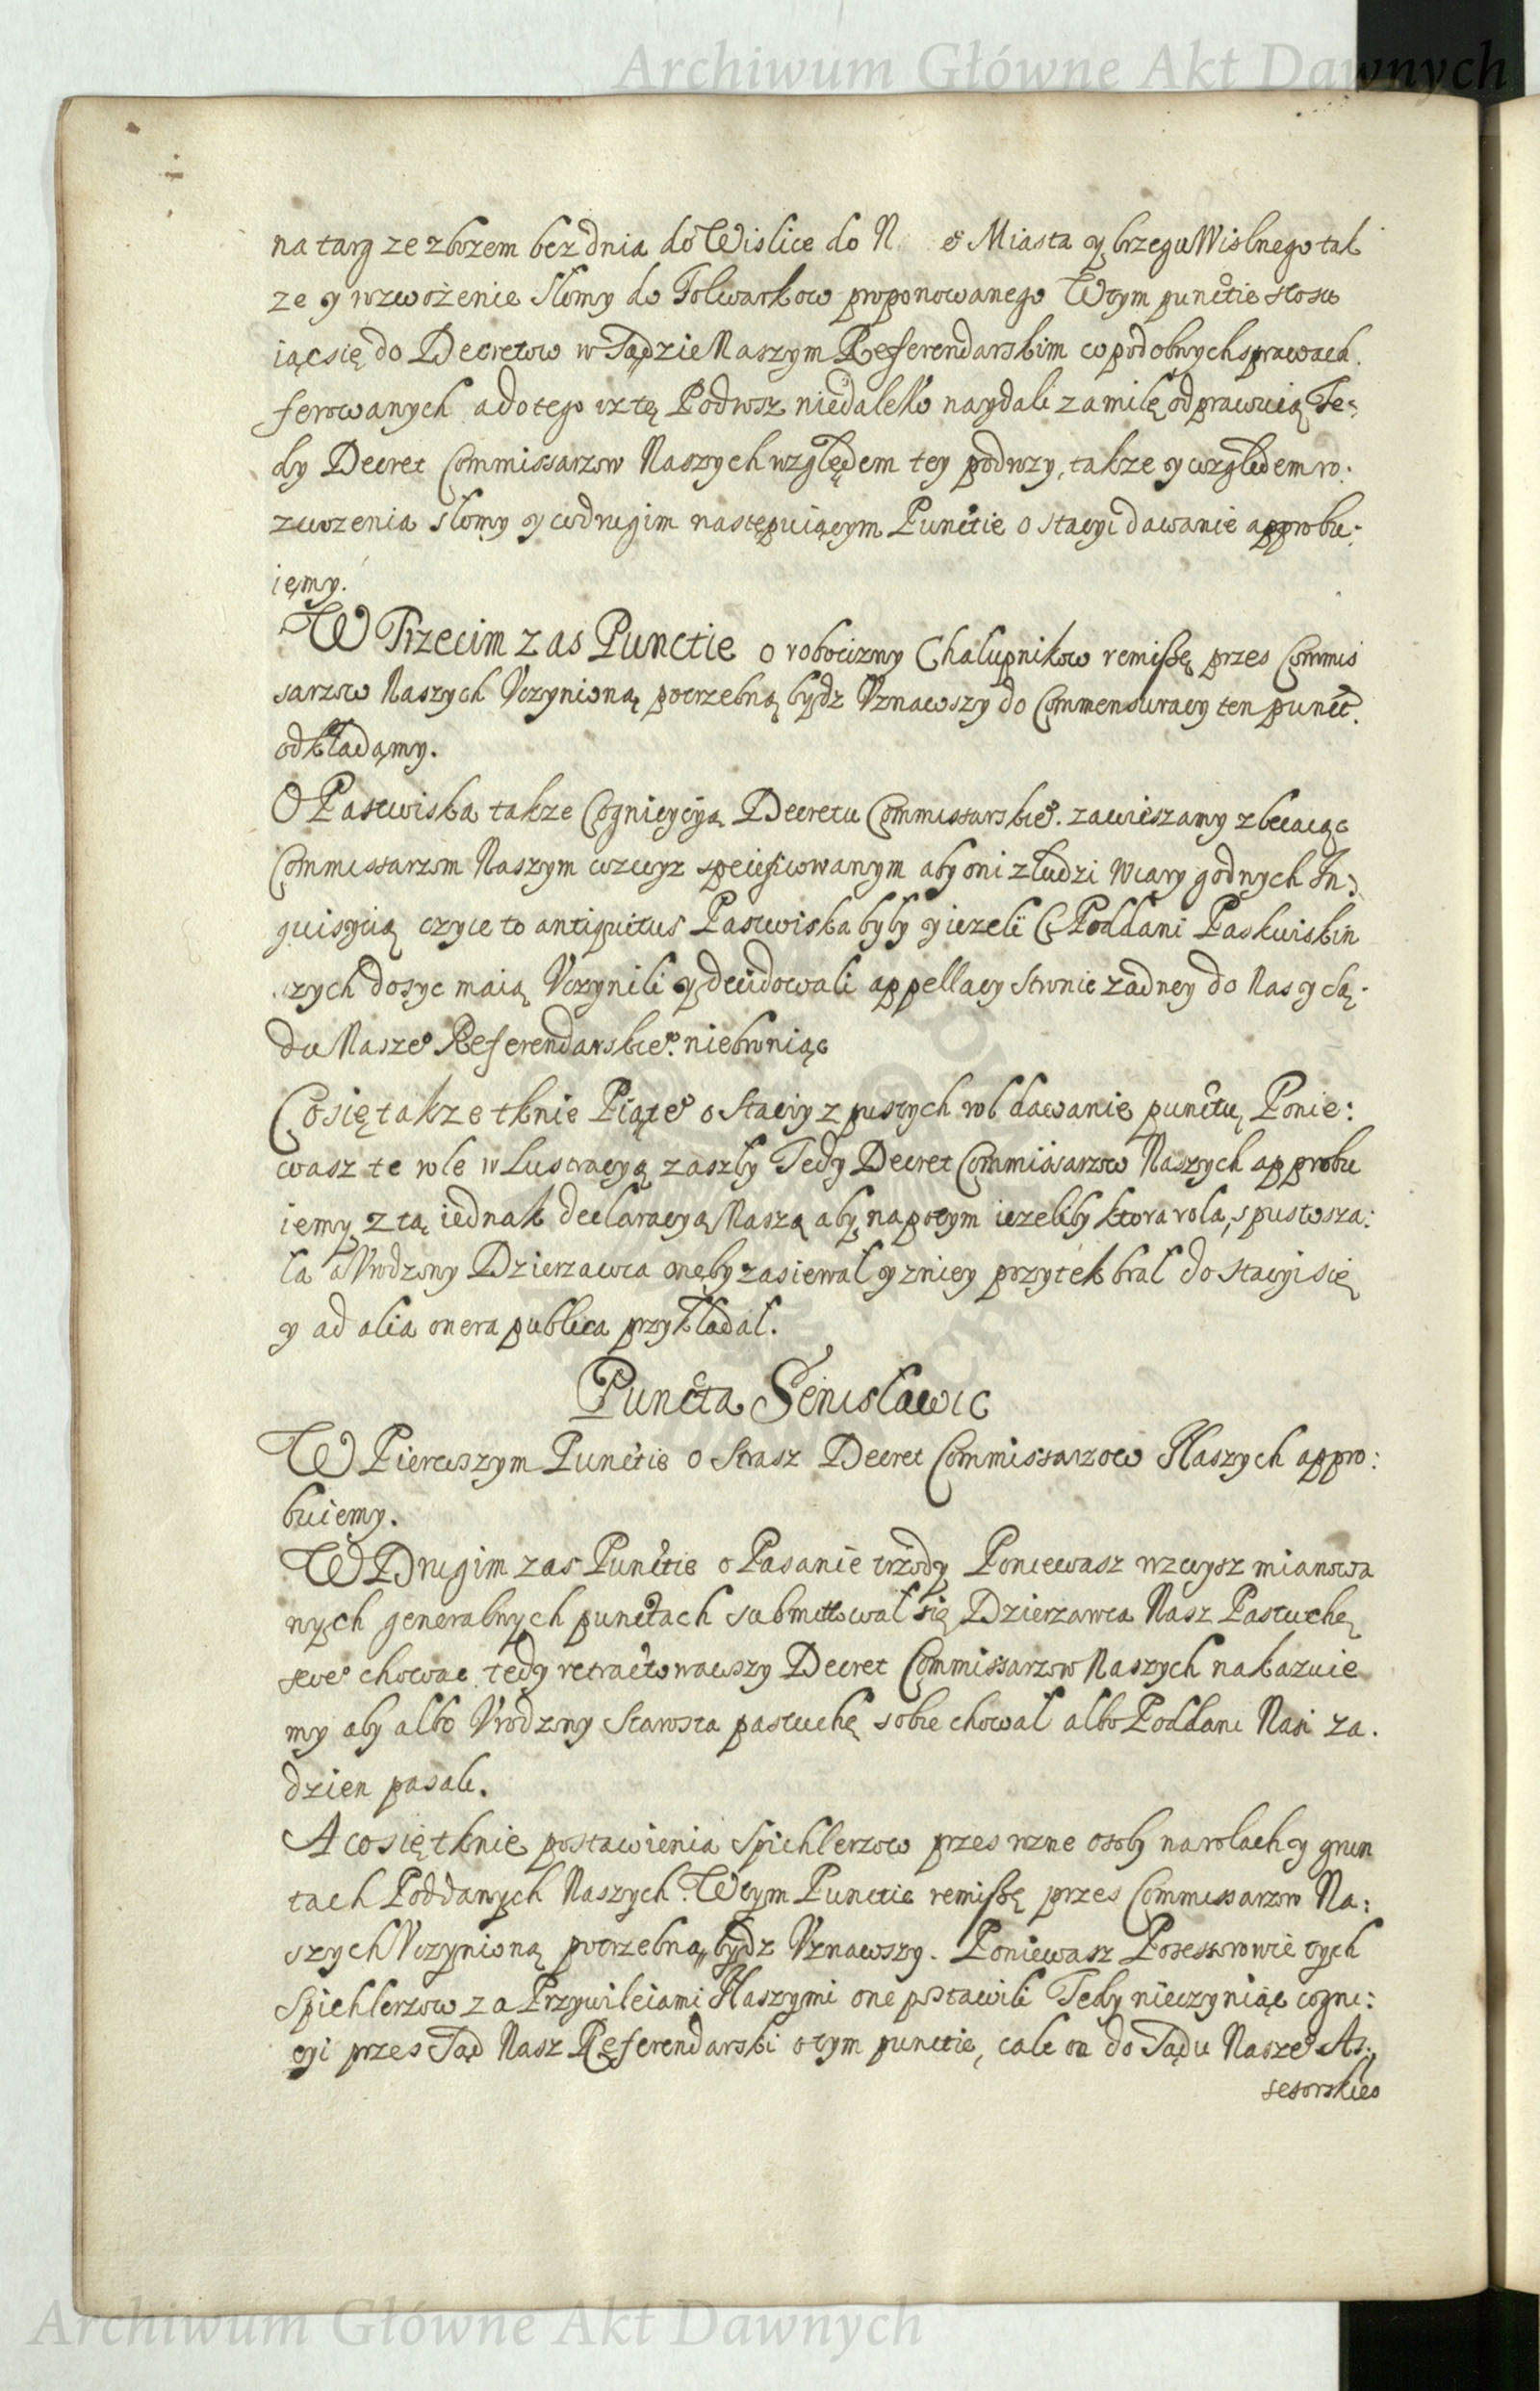 Archiwum Główne Akt Dawnych
na targ ze zbozem bez dnia do Wislice do N e° Miasta y brzegu Wislnego tak
ze y rozwożenie Słomy do Folwarkow proponowanego W tym punctie stosu
iąc się do Decretow w Sądzie Naszym Referendarskim w podobnych sprawach
ferowanych a do tego iz tę Podwsz niedaleko naydali za milę odprawuią Te:
dy Decret Commissarzow Naszych względem tey podwzy, takze y względem ro:
zwozenia słomy y w drugim następuiącym Punctie o stacyi dawanie approbu:
iemy.
W Trzecim zas Punctie o robocizny Chalupnikow remissę przes Commis
sarzow Naszych Vczynioną potrzebną bydz Vznawszy do Commensuracy ten punct
odkładamy.
O Pastwiska takze Cognicyią Decretu Commissarskie°. zawieszamy zlecaiąc
Commissarzom Naszym wzwyz specificowanym aby oni z ludzi wiary godnych In:
quisicią czyie to antiquitus Pastwiska były y iezeli Poddani Paskwisk in
szych dosyc maią Vczynili y decidowali appellacy stronie zadney do Nas y Są:
du Nasze° Referendarskie°. niebroniąc
Co się takze tknie Piąte° o Staciy z pustych rol dawanie punctu, Ponie:
wasz te role w Lustracyą zaszly Tedy Decret Commissarzow Naszych approbu
iemy z tą iednak declaracyą Naszą aby na potym iezeliby ktora rola spustosza:
la a Vrodzony Dzierzawca onęby zasiewal y zniey pozytek bral do stacyi się
y ad alia onera publica przykladal.
Puncta Senislawic
W Pierwszym Punctie o Strasz Decret Commissarzow Naszych appro:
buiemy.
W Drugim zas Punctie o Pasanie trzody Poniewasz wzwysz mianowa
nych generalnych punctach submittowal się Dzierzawca Nasz Pastuchę
swe° chowac tedy retractowawszy Decret Commissarzow Naszych nakazuie
my aby albo Vrodzony Starosta pastuchę sobie chowal albo Poddani Nasi za
dzien pasali.
A co się tknie postawienia Spichlerzow przes rozne osoby na rolach y grun
tach Poddanych Naszych. W tym Punctie remissę przes Commissarzow Na:
szych Vczynioną potrzebną bydz Vznawszy. Poniewasz Posessorowie tych
Spichlerzow za Przywileiami Naszymi one postawili Tedy nieczyniąc cogni:
cyi przes Sąd Nasz Referendarski o tym punctie, cale on do Sądu Nasze° As:
sesorskie°
Archiwum Główne Akt Dawnych